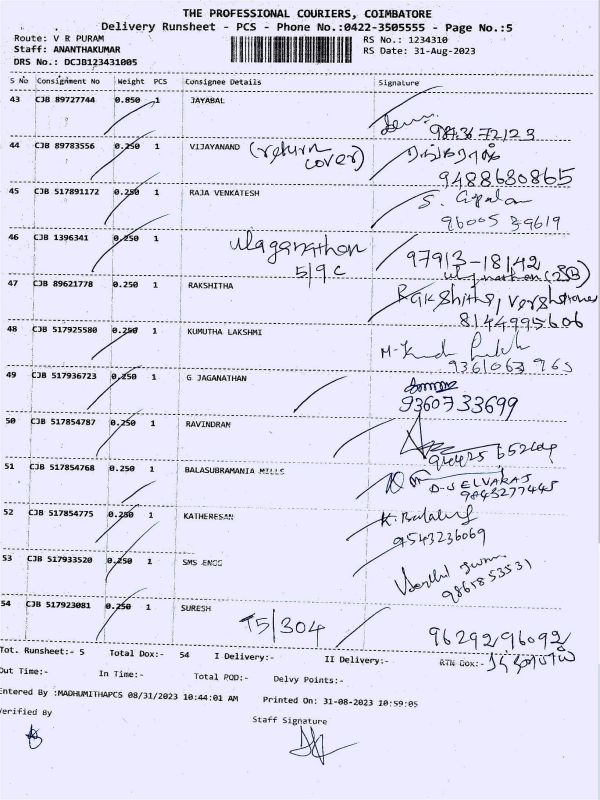 THE PROFESSIONAL COURIERS, COIMBATORE
Delivery Runsheet - PCS - Phone No.:0422-3505555 - Page No.:5
Route: V R PURAM RS No.: 1234310
Staff: ANANTHAKUMAR RS Date: 31-Aug-2023
DRS No.: DCJB123431005
S No Consignment No Weight PCS Consignee Details Signature
43 CJB 89727744 0.850 1 JAYABAL
44 CJB 89783556 0.250 1 VIJAYANAND (return cover)
9488680865
45 CJB 517891172 0.250 1 RAJA VENKATESH S. Gopalan
96005 39619
46 CJB 1396341 0.250 1 ulaganathan 97913-18142
5/9 C
47 CJB 89621778 0.250 1 RAKSHITHA Rakshitha,
8144995606
48 CJB 517925580 0.250 1 KUMUTHA LAKSHMI
9361063965
49 CJB 517936723 0.250 1 G JAGANATHAN
9360733699
50 CJB 517854787 0.250 1 RAVINDRAN
51 CJB 517854768 0.250 1 BALASUBRAMANIA MILLS D.SELVARAJ
9843277445
52 CJB 517854775 0.250 1 KATHERESAN
9543236069
53 CJB 517933520 0.250 1 SMS ENGG
9865853531
54 CJB 517923081 0.250 1 SURESH 15/304 96292 96092
Tot. Runsheet:- 5 Total Dox:- 54 I Delivery:- II Delivery:- RTN Dox:-
Out Time:- In Time:- Total POD:- Delvy Points:-
Entered By :MADHUMITHAPCS 08/31/2023 10:44:01 AM Printed On: 31-08-2023 10:59:05
Verified By Staff Signature